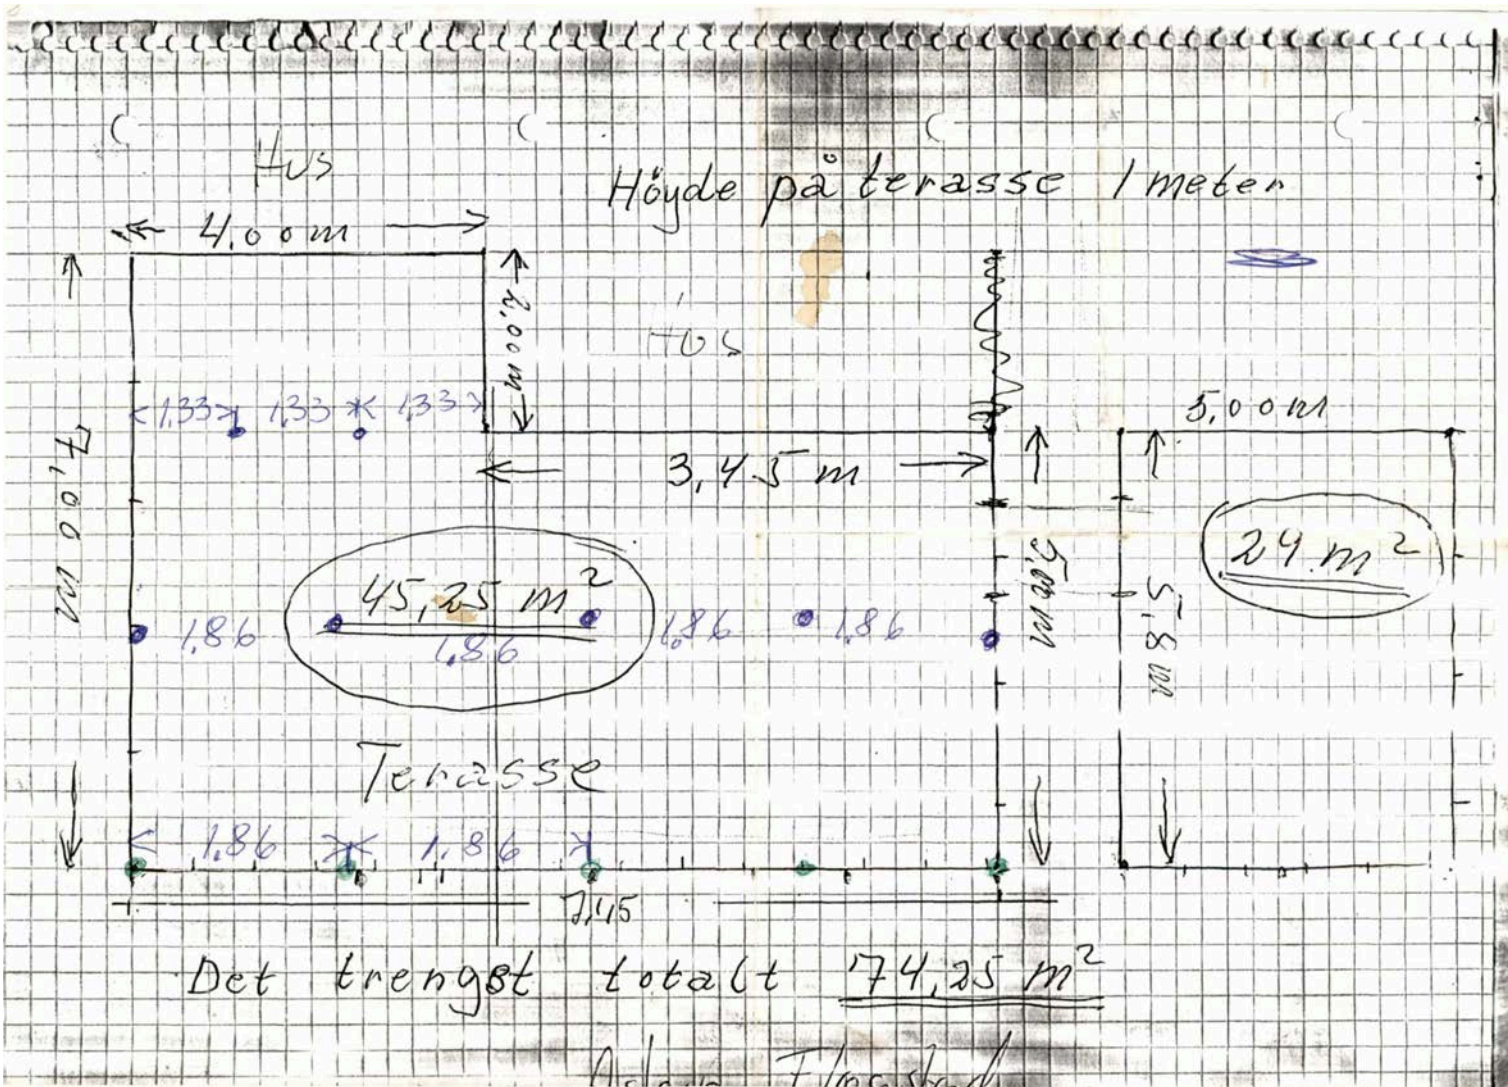 Hus
Höyde på terasse 1 meter
4,00 m
2,00 m
Hus
7,00 m
1,33 1,33 1,33
5,00 m
3,45 m
45,25 m²
24 m²
5,00 m
5,8 m
1,86 1,86 1,86 1,86
Terasse
1,86 1,86
7,45
Det trengst totalt 74,25 m²